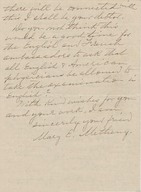 there fill be connected with
this I shall be your debtor.
Do you not think this
would be a good time for
the English and French
ambassadors to ask that
all English & American
physicians be allowed to
take the examination in
English.
With kind wishes for you
and your work, I am
Sincerely your friend
Mary E.